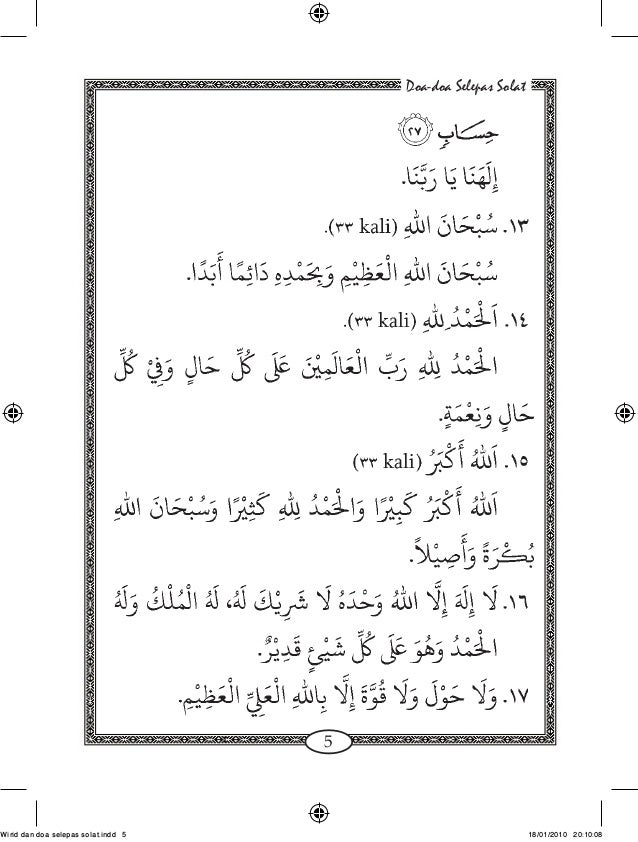 Doa-doa Selepas Solat
حِسَابٍ ۝٢٧
إِلَهَنَا يَا رَبَّنَا.
١٣. سُبْحَانَ اللهِ (٣٣ kali).
سُبْحَانَ اللهِ الْعَظِيْمِ وَبِحَمْدِهِ دَائِمًا أَبَدًا.
١٤. اَلْحَمْدُ لِلهِ (٣٣ kali).
الْحَمْدُ لِلهِ رَبِّ الْعَالَمِيْنَ عَلَى كُلِّ حَالٍ وَفِيْ كُلِّ
حَالٍ وَنِعْمَةٍ.
١٥. اَللهُ أَكْبَرُ (٣٣ kali)
اَللهُ أَكْبَرُ كَبِيْرًا وَالْحَمْدُ لِلهِ كَثِيْرًا وَسُبْحَانَ اللهِ
بُكْرَةً وَأَصِيْلاً.
١٦. لَا إِلَهَ إِلَّا اللهُ وَحْدَهُ لَا شَرِيْكَ لَهُ، لَهُ الْمُلْكُ وَلَهُ
الْحَمْدُ وَهُوَ عَلَى كُلِّ شَيْئٍ قَدِيْرٌ.
١٧. وَلَا حَوْلَ وَلَا قُوَّةَ إِلَّا بِاللهِ الْعَلِيِّ الْعَظِيْمِ.
5
Wirid dan doa selepas solat.indd 5
18/01/2010 20:10:08